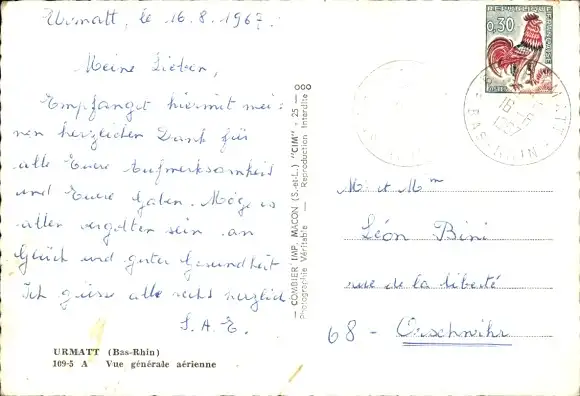 Urmatt, le 16.8.1967.
Meine Lieben,
Empfanget hiermit mei-
nen herzlichen Dank für
alle Eure Aufmerksamkeit
und Eure Gaben. Möge es
allen vergolten sein an
Glück und guter Gesundheit
Ich grüsse alle recht herzlich
S. A. E.
URMATT (Bas-Rhin)
109-5 A Vue générale aérienne
— COMBIER IMP. MACON (S.-et-L.) "CIM" — 25 — ooo
Photographie Véritable — Reproduction Interdite
REPUBLIQUE FRANÇAISE
0,30
16
BAS-RHIN
Mr et Mme
Léon Bini
rue de la liberté
68 - Orschwihr